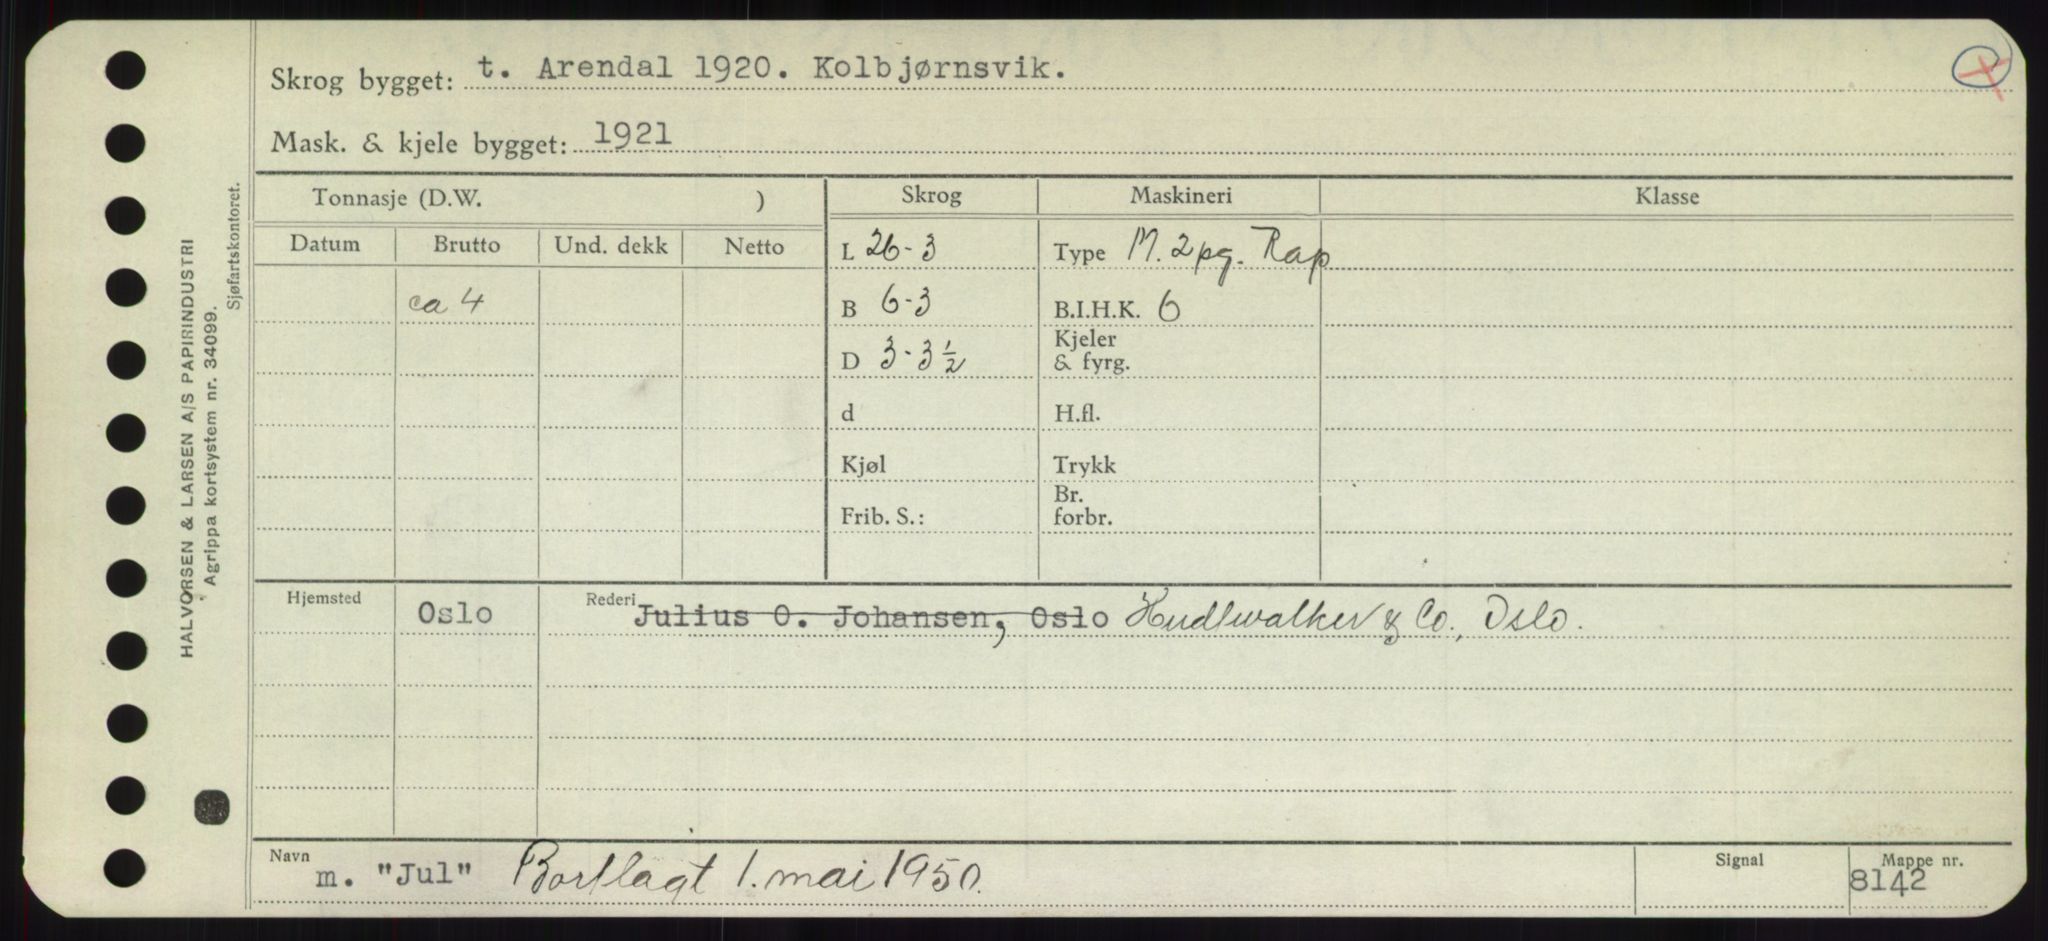 Skrog bygget: t. Arendal 1920. Kolbjørnsvik.
Mask. & kjele bygget: 1921
Tonnasje (D.W. ) Skrog Maskineri Klasse
Datum Brutto Und. dekk Netto L 26-3 Type M. 2pg. Rap
ca 4 B 6-3 B.I.H.K. 6
D 3-3½ Kjeler & fyrg.
d H.fl.
Kjøl Trykk
Frib. S.: Br. forbr.
Hjemsted Oslo Rederi Julius O. Johansen, Oslo Hudtwalker & Co., Oslo.
Navn m. "Jul" Bortlagt 1. mai 1950. Signal Mappe nr. 8142
HALVORSEN & LARSEN A/S PAPIRINDUSTRI
Agrippa kortsystem nr. 34099.
Sjøfartskontoret.